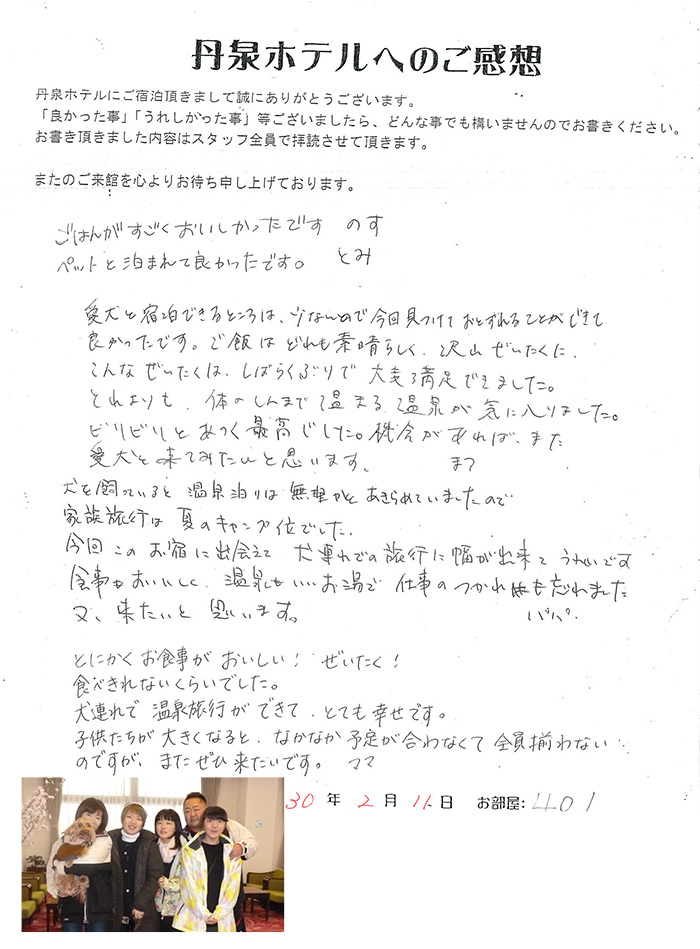 丹泉ホテルへのご感想
丹泉ホテルにご宿泊頂きまして誠にありがとうございます。
「良かった事」「うれしかった事」等ございましたら、どんな事でも構いませんのでお書きください。
お書き頂きました内容はスタッフ全員で拝読させて頂きます。
またのご来館を心よりお待ち申し上げております。
ごはんがすごくおいしかったです のす
ペットと泊まれて良かったです。 とみ
愛犬と宿泊できるところは、少ないので今回見つけておとずれることができて
良かったです。ご飯はどれも素晴らしく、沢山ぜいたくに、
こんなぜいたくは、しばらくぶりで大変満足できました。
それよりも、体のしんまで温まる温泉が気に入りました。
ビリビリとあつく最高でした。機会があれば、また
愛犬と来てみたいと思います。
犬を飼っていると温泉泊りは無理かとあきらめていましたので
家族旅行は夏のキャンプ位でした、
今回このお宿に出会えて犬連れでの旅行に幅が出来てうれしいです
食事もおいしく、温泉もいいお湯で仕事のつかれも忘れました
又、来たいと思います。 パパ
とにかくお食事がおいしい! ぜいたく!
食べきれないくらいでした。
犬連れで温泉旅行ができて、とても幸せです。
子供たちが大きくなると、なかなか予定が合わなくて全員揃わない
のですが、またぜひ来たいです。 ママ
30 年 2 月 11 日 お部屋: 4401